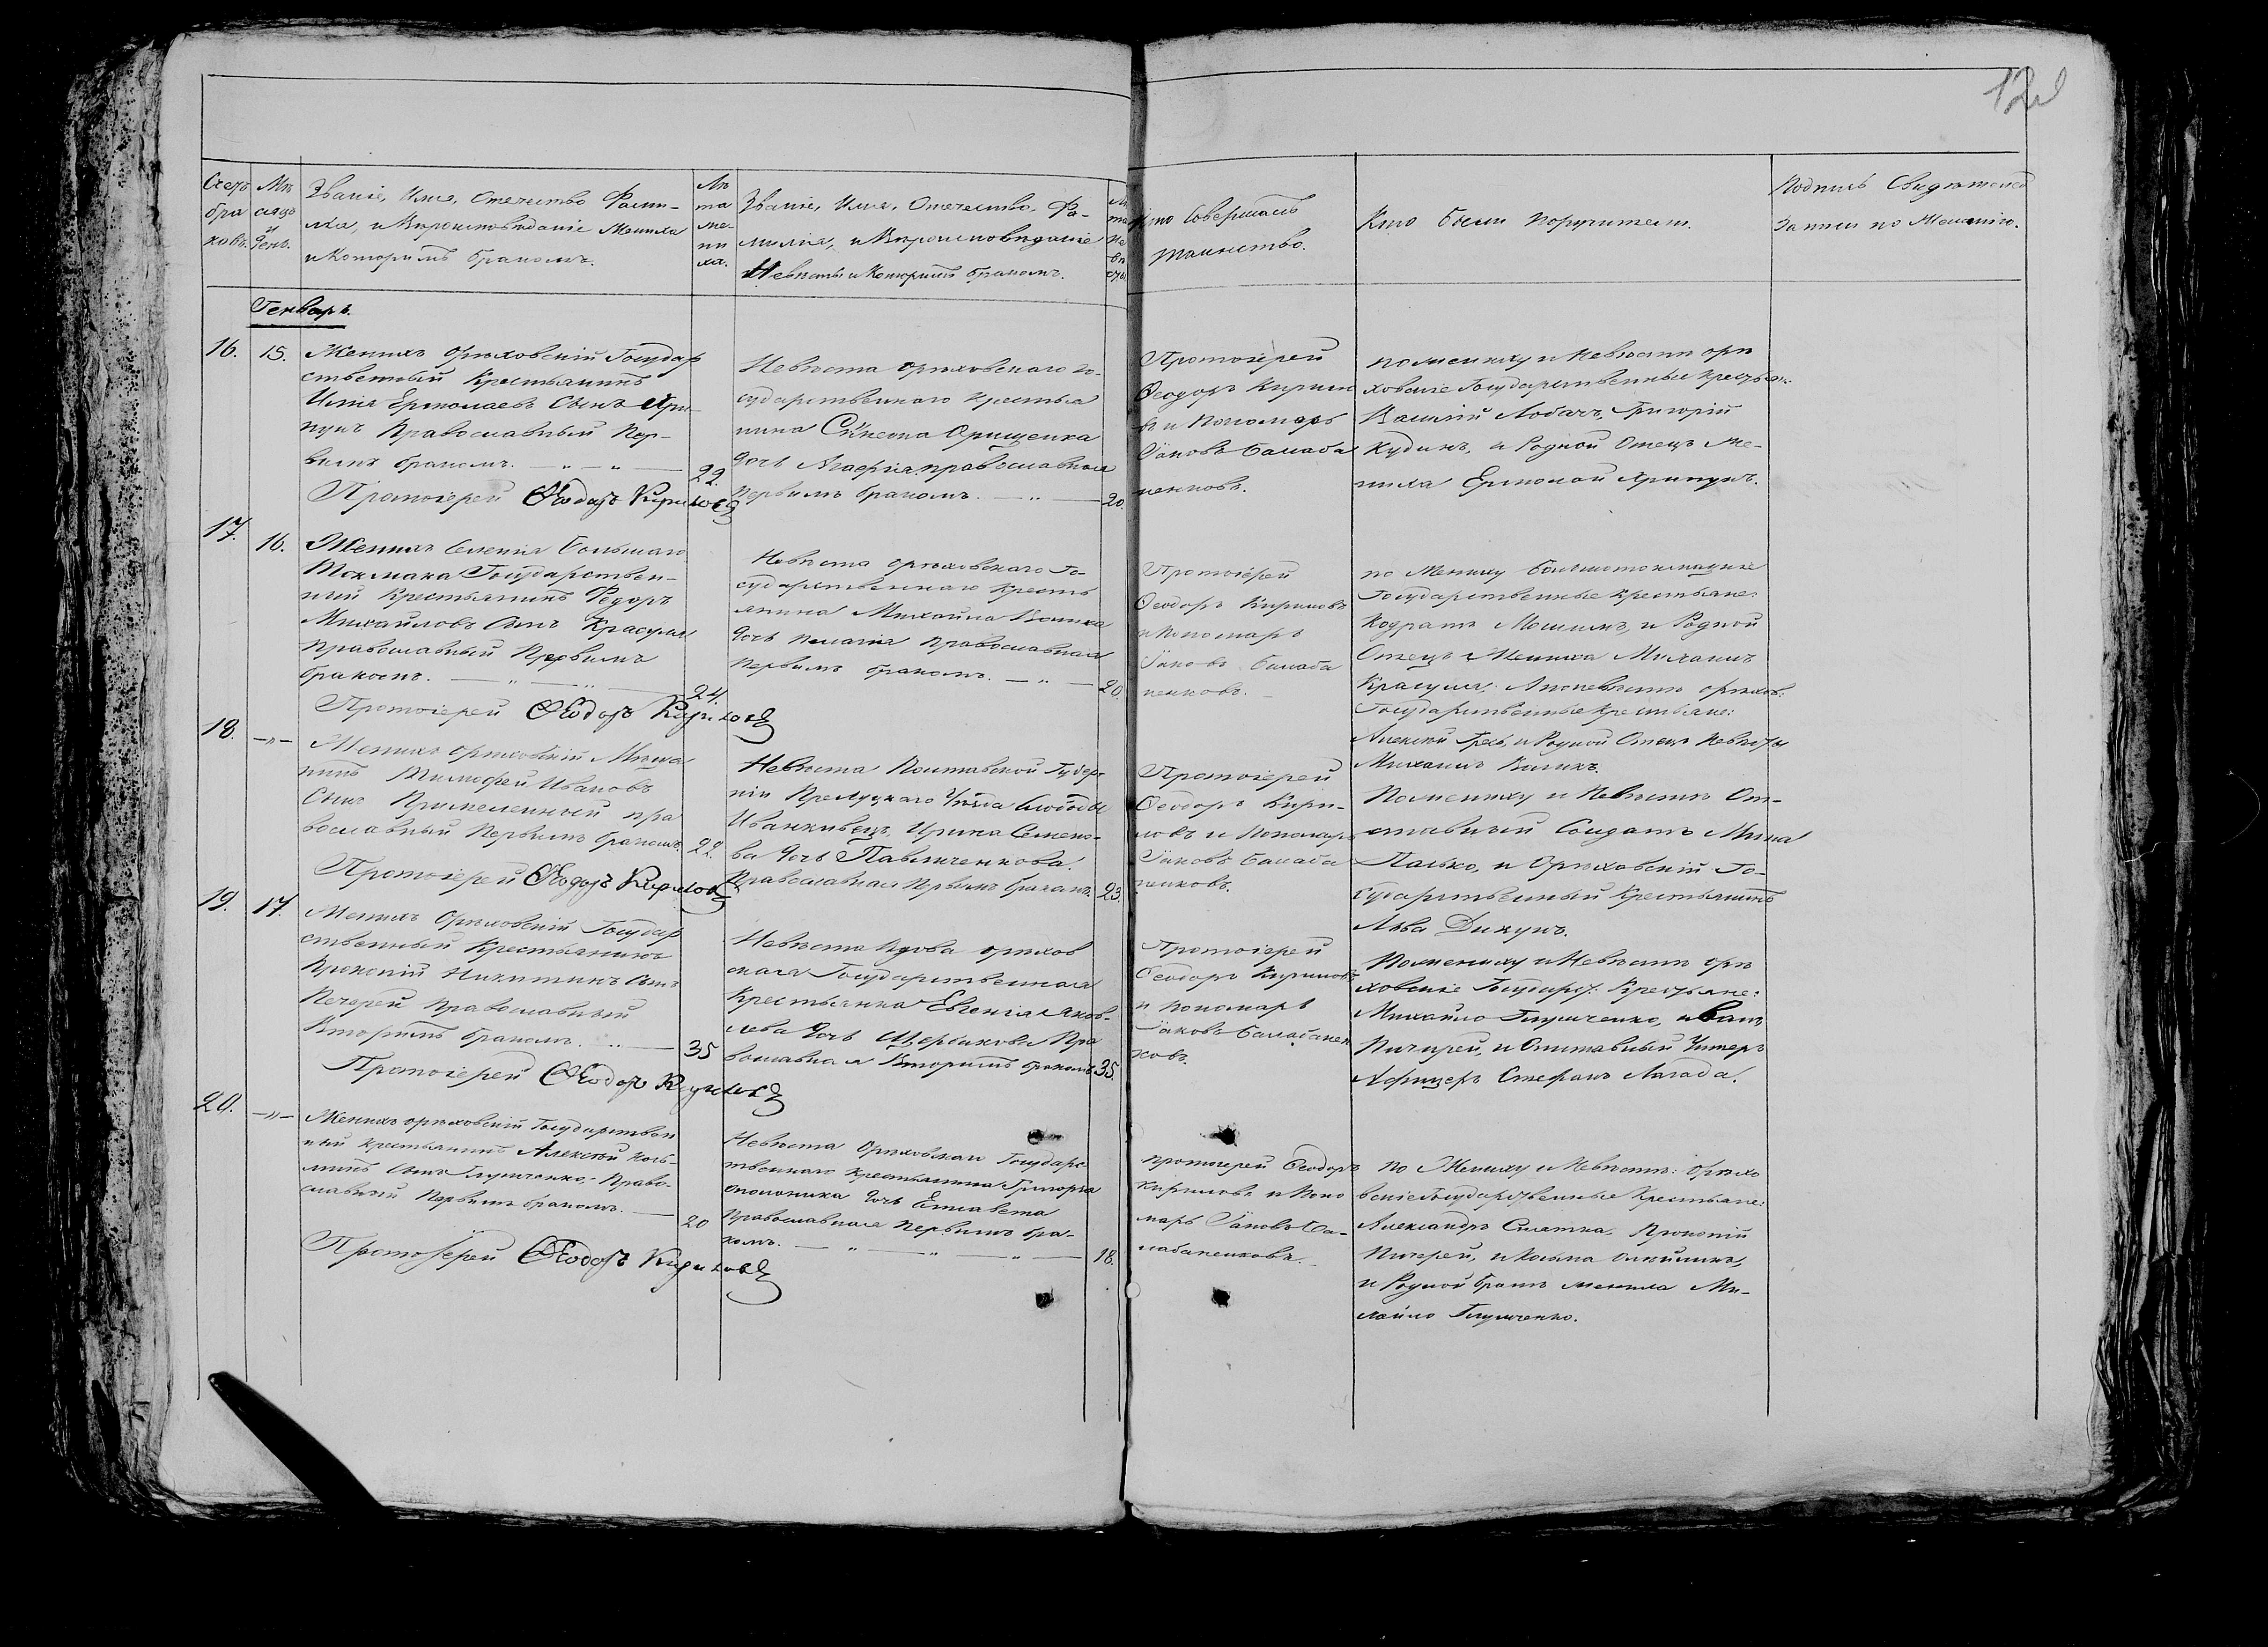 12
Счетъ браковъ.
Мѣсяцъ и день.
Званіе, Имя, Отечество Фами-
лія, и Вѣроисповѣданіе Жениха
и Которымъ бракомъ.
Лѣта жениха.
Званіе, Имя, Отечество, Фа-
милія, и Вѣроисповѣданіе
Невѣсты и Которымъ бракомъ.
Лѣта невѣсты
Кто Совершалъ
таинство.
Кто были поручители.
Подпись Свидѣтелей
Записи по Желанію.
Генварь.
16. 15.
Женихъ Орѣховскій Государ
ственный Крестьянинъ
Илія Ермолаевъ Сынъ Хри
пунъ Православный Пер-
вымъ бракомъ. — „ — „ — 22.
Протоіерей Ѳеодоръ Кириловъ
Невѣста Орѣховскаго Го-
сударственнаго Крестья
нина Онищенка
дочь Агафія православная
первымъ бракомъ. — „ — 20.
Протоіерей
Ѳеодоръ Кирил
въ и Пономарь
Іаковъ Балаба
ненковъ.
по жениху и Невѣстѣ орѣ
ховскіе Государственные Крестьян:
Василій Лобачъ, Григорій
Кудинъ, и Родной Отецъ Же-
ниха Ермолай Хрипунъ.
17. 16.
Женихъ Селенія Большаго
Токмака Государствен-
ный Крестьянинъ Федоръ
Михайловъ Сынъ Красуля
Православный Первымъ
бракомъ. — „ — „ — 24.
Протоіерей Ѳеодоръ Кириловъ
Невѣста Орѣховскаго Го-
сударственнаго Кресть
янина Михайла Волика
дочь Пелагія Православная
Первымъ бракомъ. — „ — 20.
Протоіерей
Ѳеодоръ Кириловъ
и Пономарь
Іаковъ Балаба
ненковъ. —
по Жениху Большотокмацкіе
Государственные Крестьяне:
Кодратъ и Родной
Отецъ Жениха Михаилъ
Красуля. А по невѣстѣ орѣхов:
Государственные Крестьяне:
Алексѣй и Родной Отецъ Невѣсты
Михаилъ Воликъ.
18. —„—
Женихъ Орѣховскій Мѣща
нинъ Тимофей Ивановъ
Сынъ пра
вославный Первымъ бракомъ. 22.
Протоіерей Ѳеодоръ Кириловъ
Невѣста Полтавской Губер-
ніи Прелуцкаго Уѣзда Слободы
Иванкивецъ, Ирина Семено-
ва дочь Павличенкова.
Православная Первымъ бракомъ. 23.
Протоіерей
Ѳеодоръ Кири-
ловъ и Пономарь
Іаковъ Балаба
ненковъ.
По жениху и Невѣстѣ От-
ставный Солдатъ Мина
Палько, и Орѣховскій Го-
сударственный Крестьянинъ
Лева Дикунъ.
19. 17.
Женихъ Орѣховскій Государ
ственный Крестьянинъ
Прокопій Никитинъ Сынъ
Печерей Православный
Вторымъ бракомъ. — „ — 35
Протоіерей Ѳеодоръ Кириловъ
Невѣста Вдова орѣхов
ская Государственная
Крестьянка Евгенія Яков-
лева дочь Щербакова Пра
вославная Вторымъ бракомъ 35.
Протоіерей
Ѳеодоръ Кириловъ
и Пономарь
Іаковъ Балабанен
ковъ.
По жениху и Невѣстѣ орѣ
ховскіе Государст: Крестьяне:
Михайло Глущенко, Иванъ
Пичирей, и Отставный Унтеръ
Афицеръ Стефанъ Лагода.
20. —„—
Женихъ орѣховскій Государствен
ный крестьянинъ Алексѣй Козь-
минъ Сынъ Глущенко, Право-
славный Первымъ бракомъ. — 20
Протоіерей Ѳеодоръ Кириловъ
Невѣста Орѣховскаго Государс-
твеннаго крестьянина Григорія
Ополоника дочь Елисавета
Православная Первымъ бра-
комъ. — „ — „ — „ — 18.
протоіерей Ѳеодоръ
Кириловъ и Поно
марь Іаковъ Ба-
лабаненковъ.
по Жениху и Невѣстѣ: Орѣхо
вскіе Государственные Крестьяне:
Александръ Прокопій
Пичерей, и Козьма Олейникъ,
и Родной братъ жениха Ми-
хайло Глущенко.